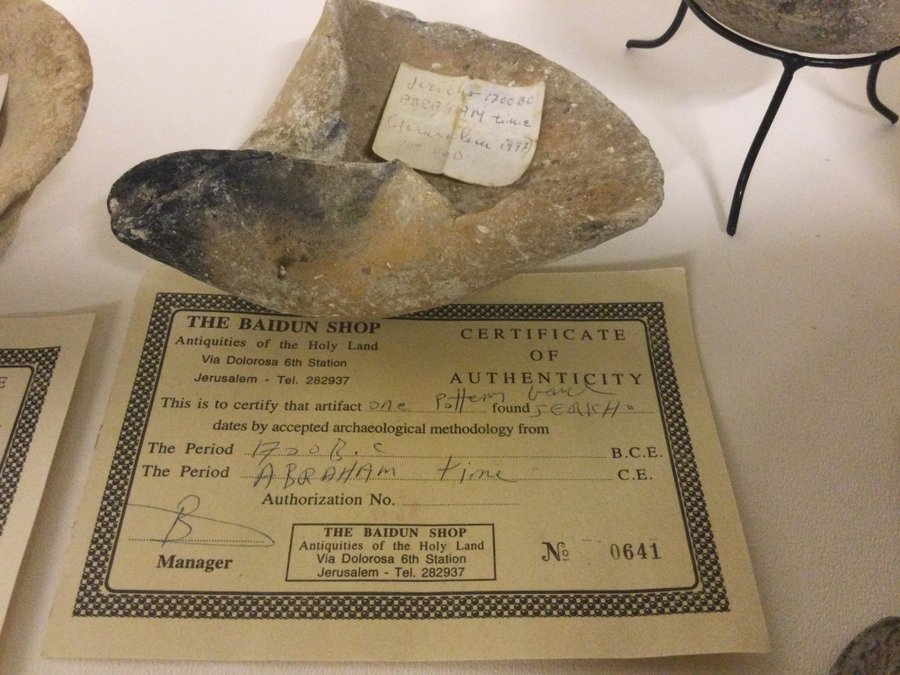 Jericho 1700 BC
ABRAHAM time
(Jerusalem 1997)
100 USD
THE BAIDUN SHOP
Antiquities of the Holy Land
Via Dolorosa 6th Station
Jerusalem - Tel. 282937
CERTIFICATE
OF
AUTHENTICITY
This is to certify that artifact one Pottery found JERICHO
dates by accepted archaeological methodology from
The Period 1700 B.C B.C.E.
The Period ABRAHAM time C.E.
Authorization No.
B
Manager
THE BAIDUN SHOP
Antiquities of the Holy Land
Via Dolorosa 6th Station
Jerusalem - Tel. 282937
№ 0641